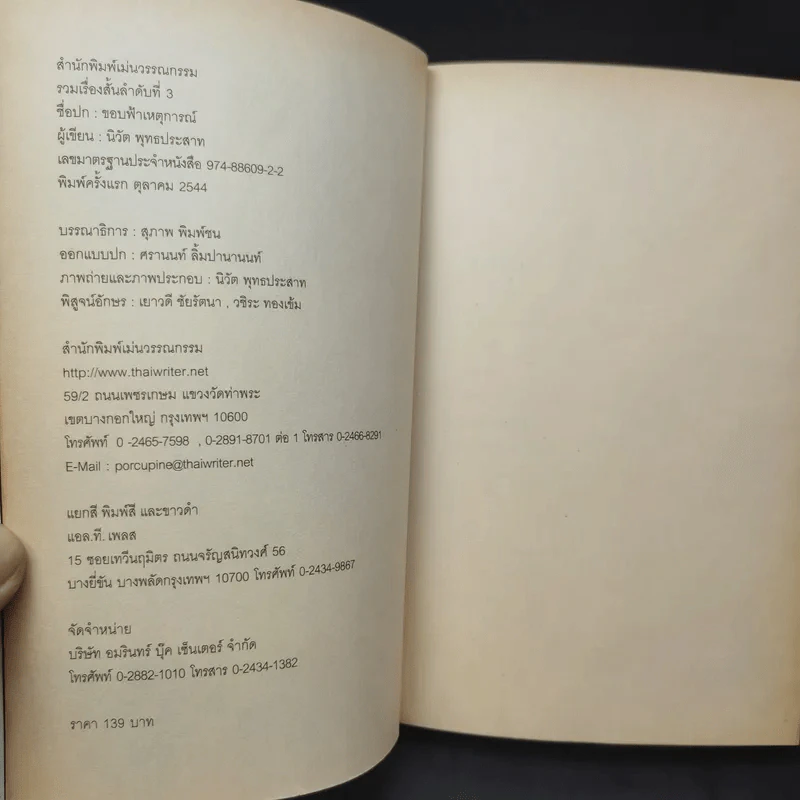 สำนักพิมพ์เม่นวรรณกรรม
รวมเรื่องสั้นลำดับที่ 3
ชื่อปก : ขอบฟ้าเหตุการณ์
ผู้เขียน : นิวัต พุทธประสาท
เลขมาตรฐานประจำหนังสือ 974-88609-2-2
พิมพ์ครั้งแรก ตุลาคม 2544
บรรณาธิการ : สุภาพ พิมพ์ชน
ออกแบบปก : ศรานนท์ ลิ้มปานานนท์
ภาพถ่ายและภาพประกอบ : นิวัต พุทธประสาท
พิสูจน์อักษร : เยาวดี ชัยรัตนา , วชิระ ทองเข้ม
สำนักพิมพ์เม่นวรรณกรรม
http://www.thaiwriter.net
59/2 ถนนเพชรเกษม แขวงวัดท่าพระ
เขตบางกอกใหญ่ กรุงเทพฯ 10600
โทรศัพท์ 0 -2465-7598 , 0-2891-8701 ต่อ 1 โทรสาร 0-2466-8291
E-Mail : porcupine@thaiwriter.net
แยกสี พิมพ์สี และขาวดำ
แอล.ที. เพลส
15 ซอยเทวีนฤมิตร ถนนจรัญสนิทวงศ์ 56
บางยี่ขัน บางพลัดกรุงเทพฯ 10700 โทรศัพท์ 0-2434-9867
จัดจำหน่าย
บริษัท อมรินทร์ บุ๊ค เซ็นเตอร์ จำกัด
โทรศัพท์ 0-2882-1010 โทรสาร 0-2434-1382
ราคา 139 บาท